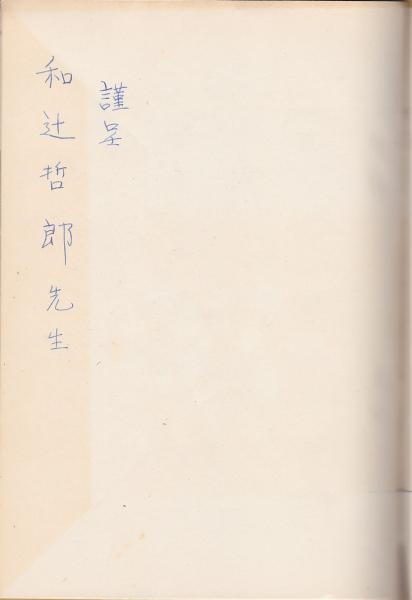 謹呈
和辻哲郎先生